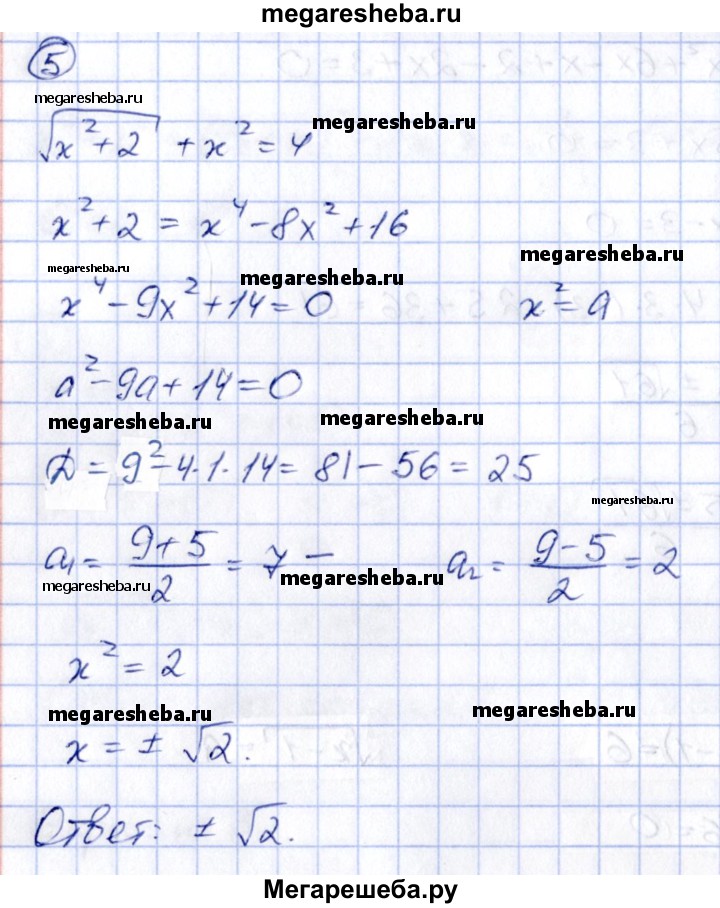 megaresheba.ru
5
megaresheba.ru
megaresheba.ru
√(x²+2) + x² = 4
x²+2 = x⁴-8x²+16
megaresheba.ru
megaresheba.ru
megaresheba.ru
x⁴-9x²+14=0 x²=a
a²-9a+14=0
megaresheba.ru
megaresheba.ru
D = 9²-4·1·14 = 81-56 = 25
megaresheba.ru
a₁ = (9+5)/2 = 7 – a₂ = (9-5)/2 = 2
megaresheba.ru
megaresheba.ru
x² = 2
megaresheba.ru
megaresheba.ru
x = ± √2.
Ответ: ± √2.
Мегарешеба.ру